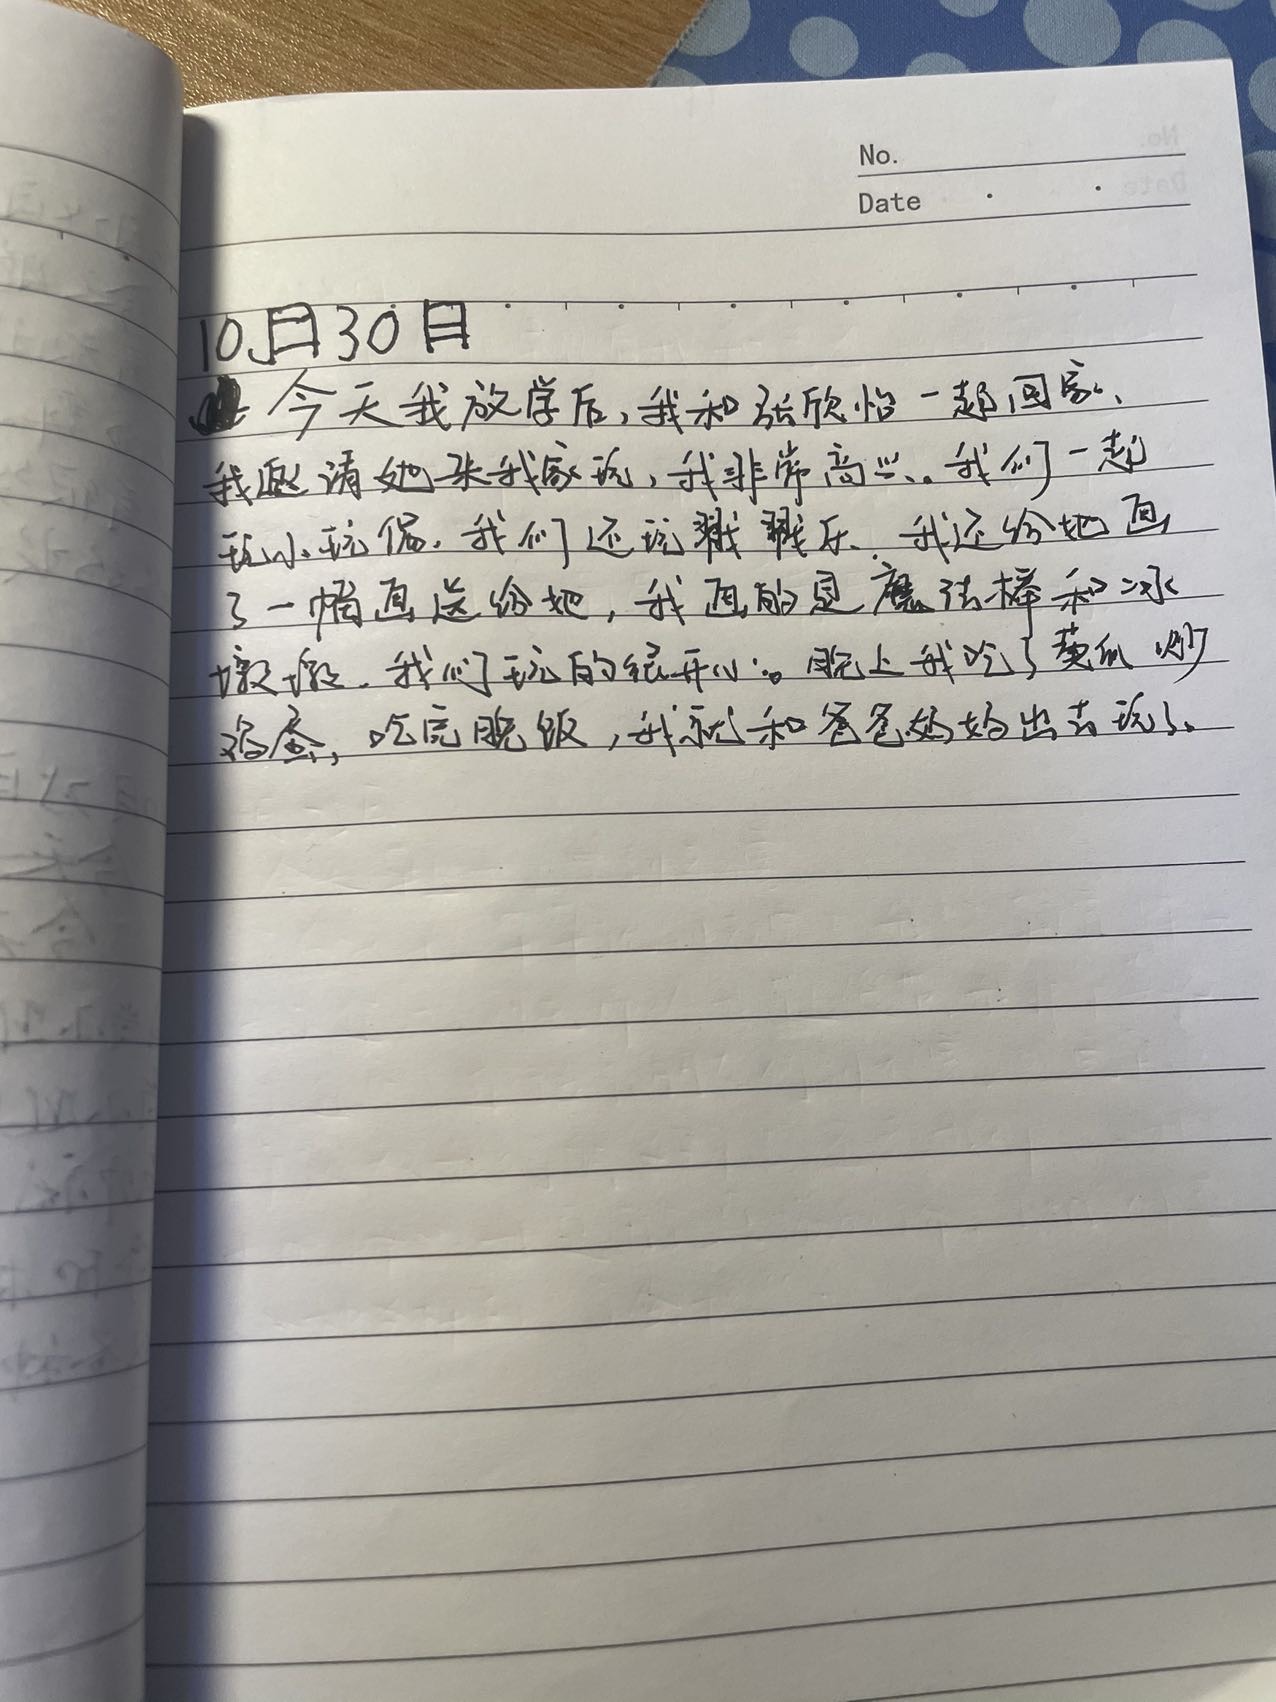 No.
Date
10月30日
今天我放学后,我和张欣怡一起回家、
我邀请她来我家玩,我非常高兴。我们一起
玩小玩偶。我们还玩戳戳乐。我还给她画
了一幅画送给她,我画的是魔法棒和冰
墩墩。我们玩的很开心。晚上我吃了黄瓜炒
鸡蛋,吃完晚饭,我就和爸爸妈妈出去玩了。